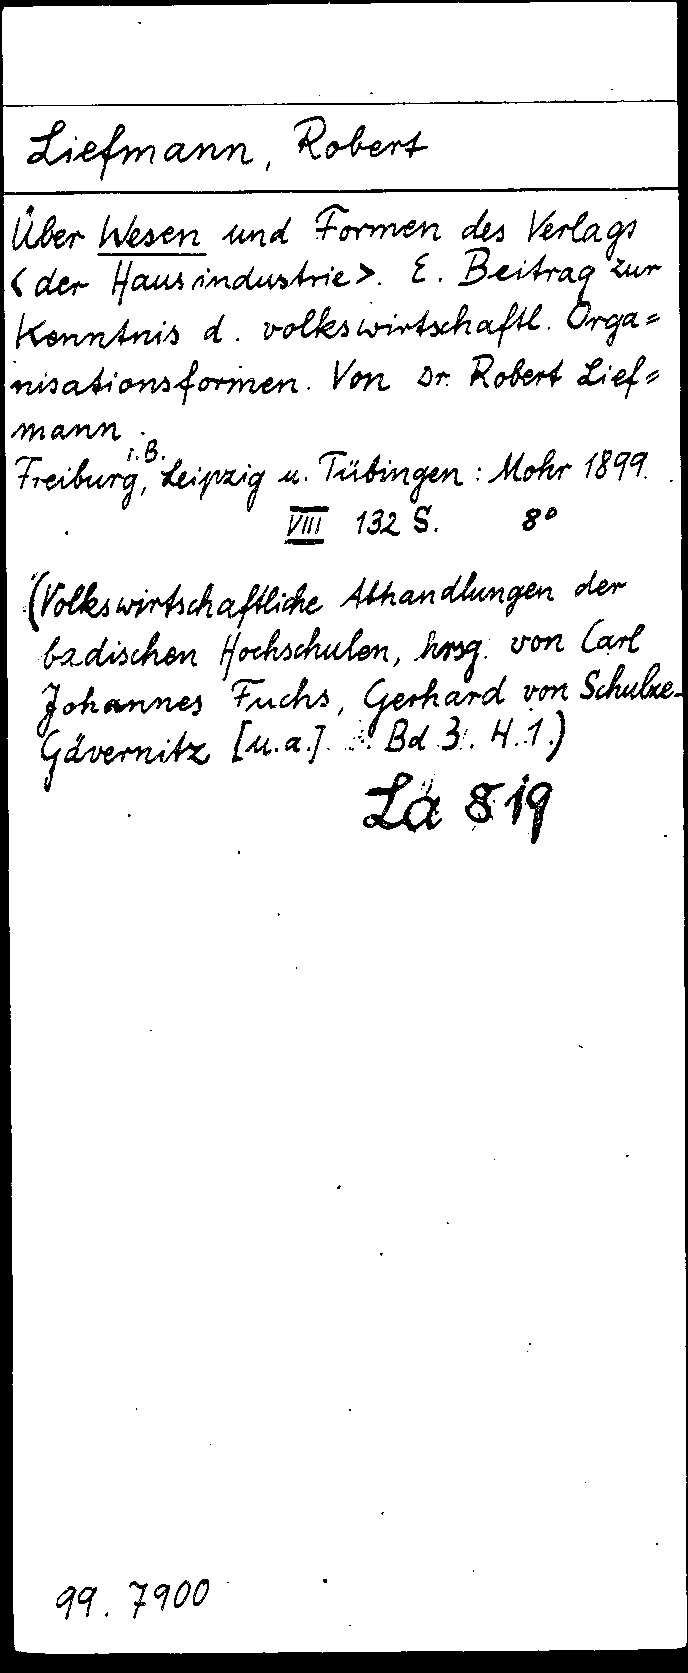 Liefmann, Robert
Über Wesen und Formen des Verlags
<der Hausindustrie>. E. Beitrag zur
Kenntnis d. volkswirtschaftl. Orga=
nisationsformen. Von Dr. Robert Lief=
mann.
Freiburg i.B., Leipzig u. Tübingen: Mohr 1899.
VIII 132 S. 8°
(Volkswirtschaftliche Abhandlungen der
badischen Hochschulen, hrsg. von Carl
Johannes Fuchs, Gerhard von Schulze-
Gävernitz [u.a.] Bd 3. H.1.)
La 819
99. 7900